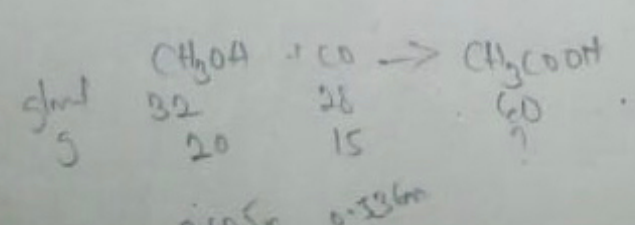 CH₃OH + CO → CH₃COOH
g/mol 32 28 60
g 20 15 ?